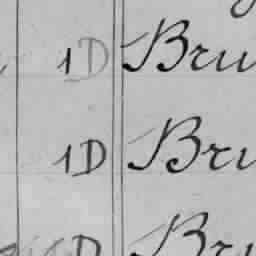 1D Bru
1D Bru
D Bru